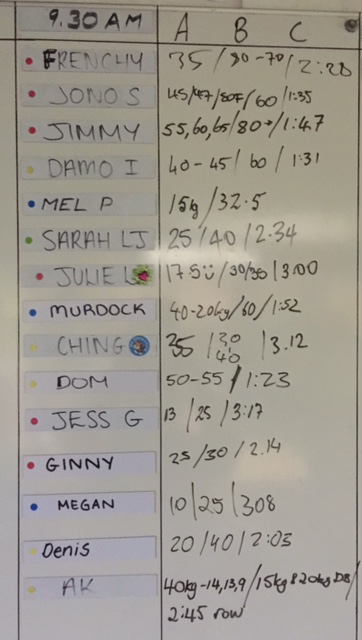 9.30 AM A B C
FRENCHY 35/80-70/2:28
JONO S 45/47/80F/60/1:35
JIMMY 55,60,65/80+/1:47
DAMO I 40-45/60/1:31
MEL P 15kg/32.5
SARAH LJ 25/40/2.34
JULIE L 17.5/30/35/3:00
MURDOCK 40-20kg/60/1:52
CHING 35/30 40/3.12
DOM 50-55/1:23
JESS G 13/25/3:17
GINNY 25/30/2.14
MEGAN 10/25/308
Denis 20/40/2:03
AK 40kg-14,13,9/15kg & 20kg DB/
2:45 row